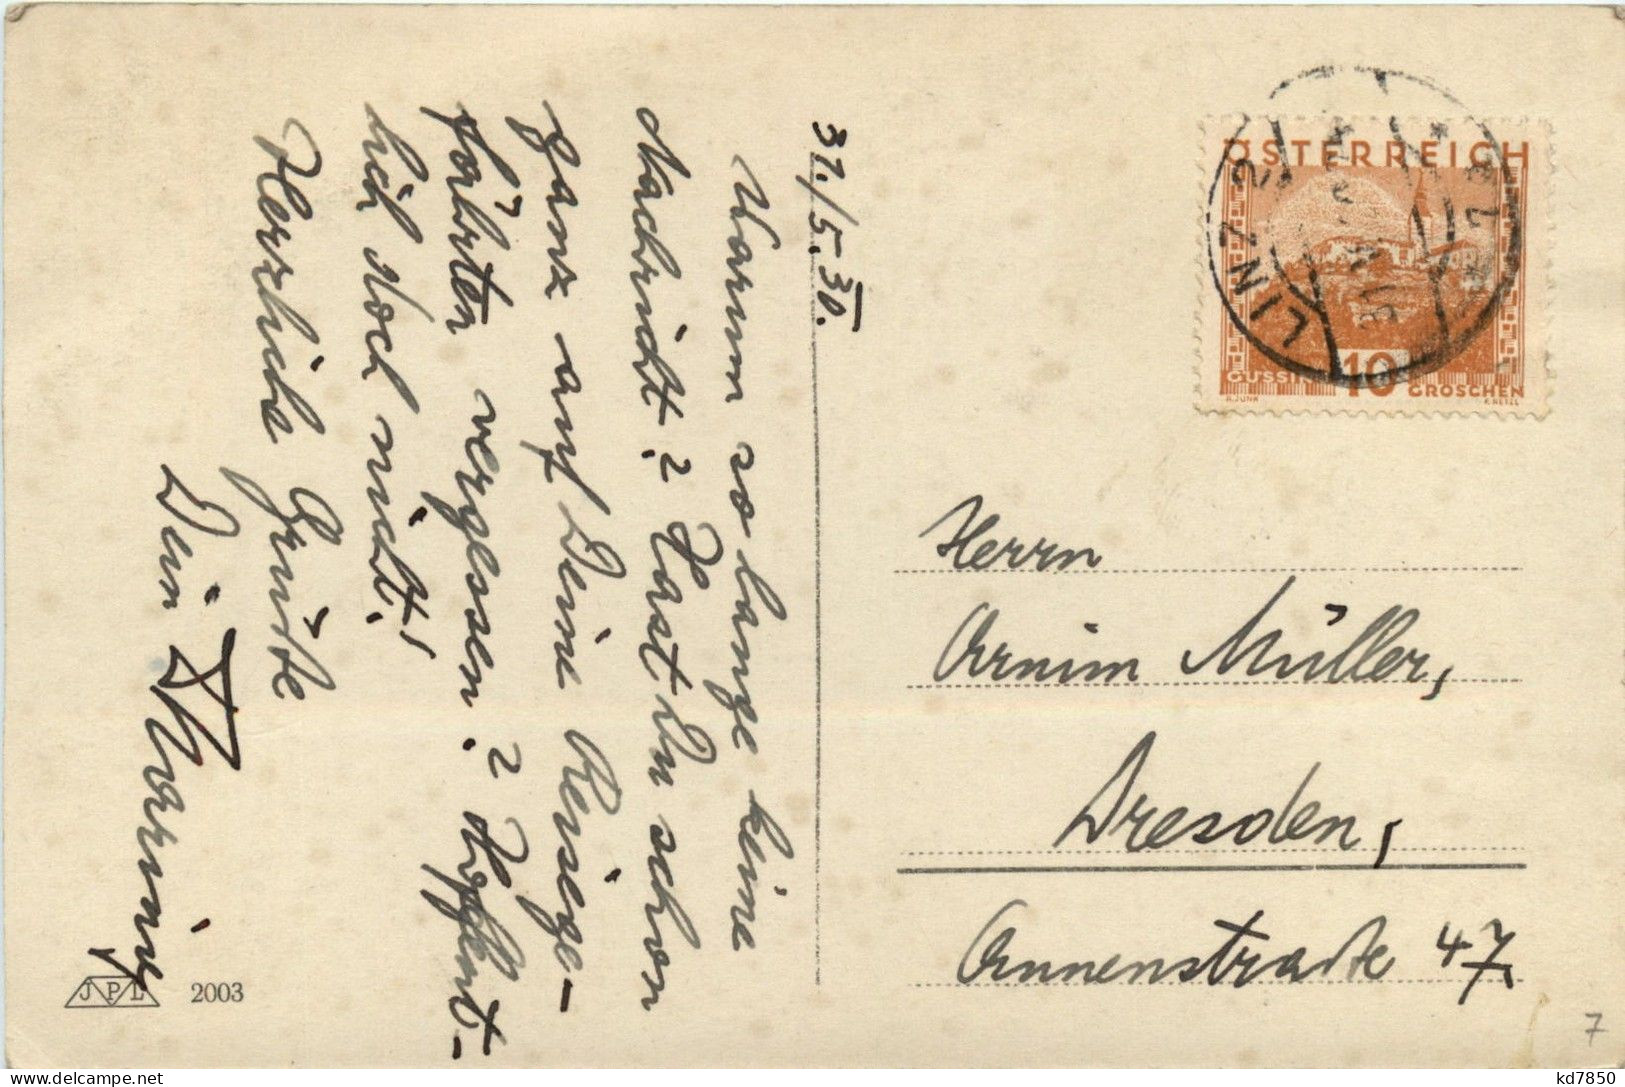 31./5.30.
Warum so lange keine
Nachricht? Hast Du schon
ganz auf Deine Reisege-
fährten vergessen? Hoffent-
lich noch nicht!
Herzliche Grüße
Dein
ÖSTERREICH
LINZ 2
GUSSI
10
GROSCHEN
Herrn
Armim Müller,
Dresden,
Annenstraße 47.
JPL 2003
7
kd7850